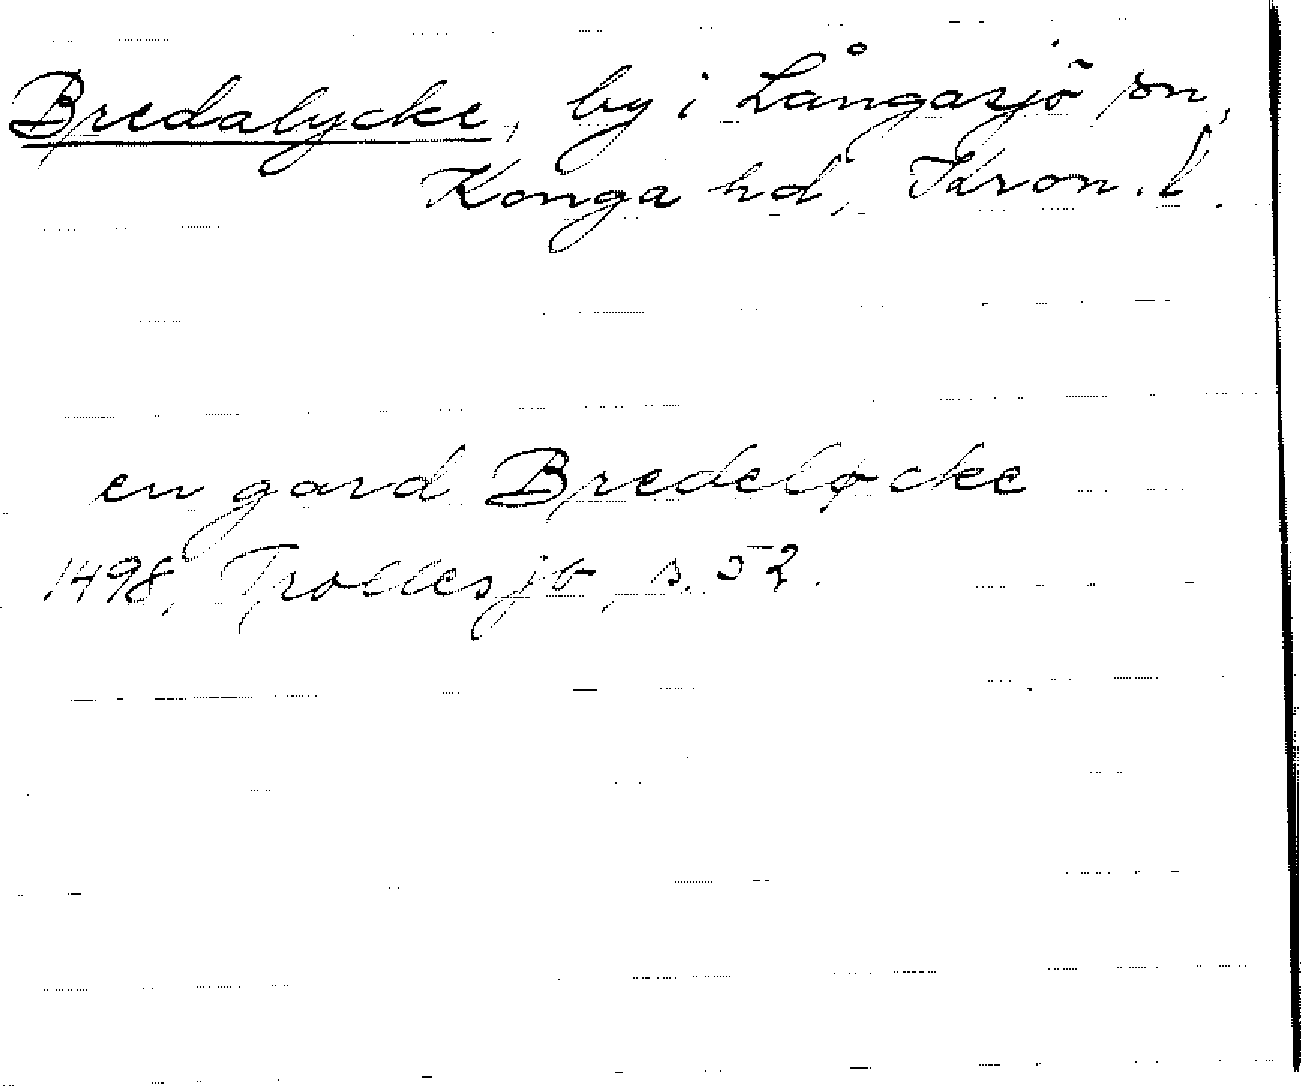 Bredalycke, by i Långasjö sn,
Konga hd, Kron. l.
en gard Bredeløcke
1498, Trolles jb, s. 52.